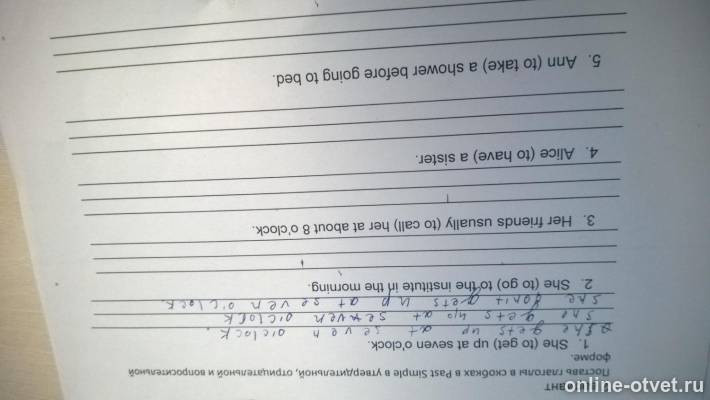 ант
Поставь глаголы в скобках в Past Simple в утвердительной, отрицательной и вопросительной
форме.
1. She (to get) up at seven o'clock.
She gets up at seven o'clock.
she gets up at seven o'clock
she don't gets up at seven o'clock.
2. She (to go) to the institute in the morning.
3. Her friends usually (to call) her at about 8 o'clock.
4. Alice (to have) a sister.
5. Ann (to take) a shower before going to bed.
online-otvet.ru